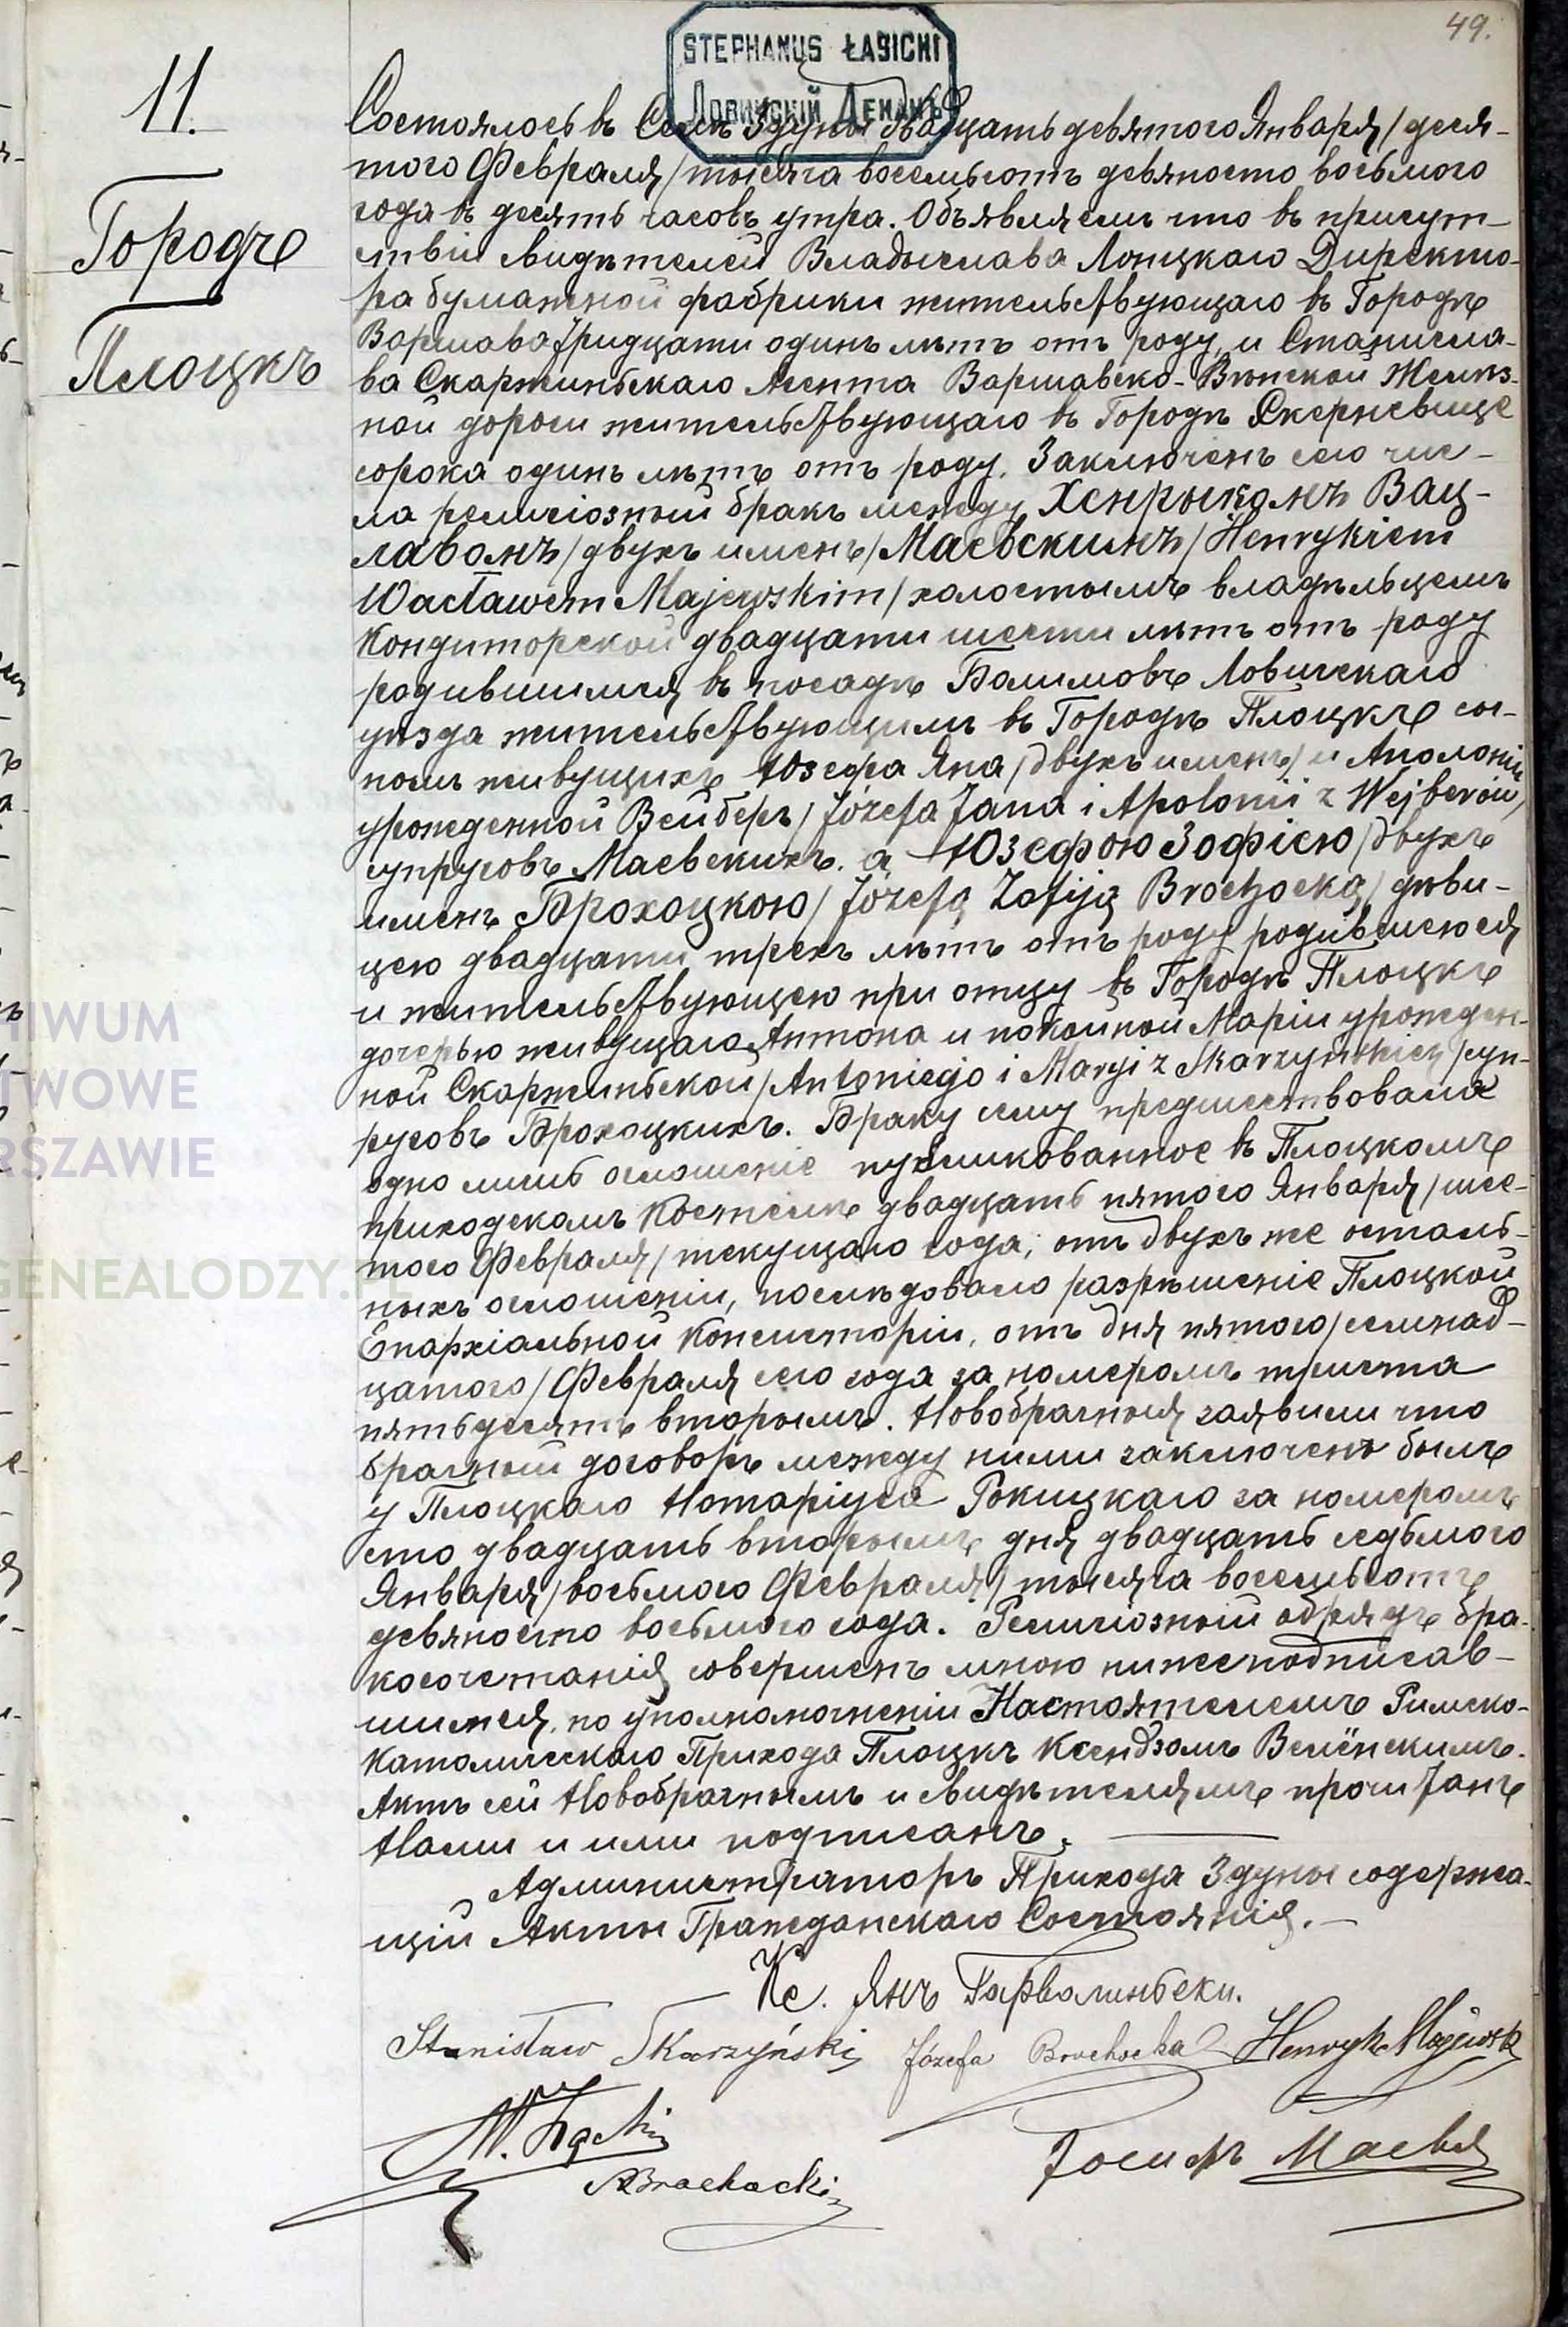 49.
STEPHANUS ŁASICKI
ЛОВИЧСКІЙ ДЕКАНЪ
11.
Городъ
Плоцкъ
Состоялось въ Селѣ Здуны двадцать девятого Января/деся-
того Февраля/тысяча восемьсотъ девяносто восьмого
года въ десять часовъ утра. Объявляемъ что въ присут-
ствіи свидѣтелей Владыслава Лонцкаго Директо-
ра бумажной фабрики жительствующаго въ Городѣ
Варшава тридцати одинъ лѣтъ отъ роду, и Станисла-
ва Скаржиньскаго Агента Варшавско-Вѣнской Желѣз-
ной дороги жительствующаго въ Городѣ Скерневице
сорока одинъ лѣтъ отъ роду. Заключенъ сего чис-
ла религіозный бракъ между Хенрыкомъ Вац-
лавомъ/двухъ именъ/Маевскимъ/Henrykiem
Wacławem Majewskim/холостымъ владѣльцемъ
Кондиторской двадцати шести лѣтъ отъ роду
родившимся въ посадѣ Болимовъ Ловичскаго
уѣзда жительствующимъ въ Городѣ Плоцкѣ сы-
номъ живущихъ Юзефа Яна/двухъ именъ/и Аполоніи
урожденной Вейберъ/Józefa Jana i Apolonii z Wejberów/
супруговъ Маевскихъ. а Юзефою Зофіею/двухъ
именъ Брохоцкою/Józefą Zofiją Brochocką/дѣви-
цею двадцати трехъ лѣтъ отъ роду родившеюся
и жительствующею при отцу въ Городѣ Плоцкѣ
дочерью живущаго Антона и покойной Маріи урожден-
ной Скаржиньской/Antoniego i Maryi z Skarzyńskich/суп-
руговъ Брохоцкихъ. Браку сему предшествовала
одно лишь оглошеніе публикованное въ Плоцкомъ
приходскомъ Костелѣ двадцать пятого Января/шес-
того Февраля/текущаго года, отъ двухъ же осталь-
ныхъ оглошеніи, послѣдовало разрѣшеніе Плоцкой
Епархіальной Консисторіи, отъ дня пятого/семнад-
цатого/Февраля сего года за номеромъ триста
пятьдесятъ вторымъ. Новобрачныя заявили что
брачный договоръ между ними заключенъ былъ
у Плоцкаго Нотаріуса Рокицкаго за номеромъ
сто двадцать вторымъ дня двадцать седьмого
Января/восьмого Февраля/тысяча восемьсотъ
девяносто восьмого года. Религіозный обрядъ бра-
косочетанія совершенъ мною нижеподписав-
шимся, по уполномочніи Настоятелемъ Римско-
Католическаго Прихода Плоцкъ Ксендзомъ Велёнскимъ.
Актъ сей Новобрачнымъ и свидѣтелямъ прочитанъ
Нами и ими подписанъ.
Администраторъ Прихода Здуны содержа-
щій Акты Гражданскаго Состоянія.
Кс. Янъ Гарвалиньски.
Stanisław Skarzyński Józefa Brochocka Henryk Majewski
ABrochocki
Іосифъ
IWUM
TWOWE
RSZAWIE
GENEALODZY.PL